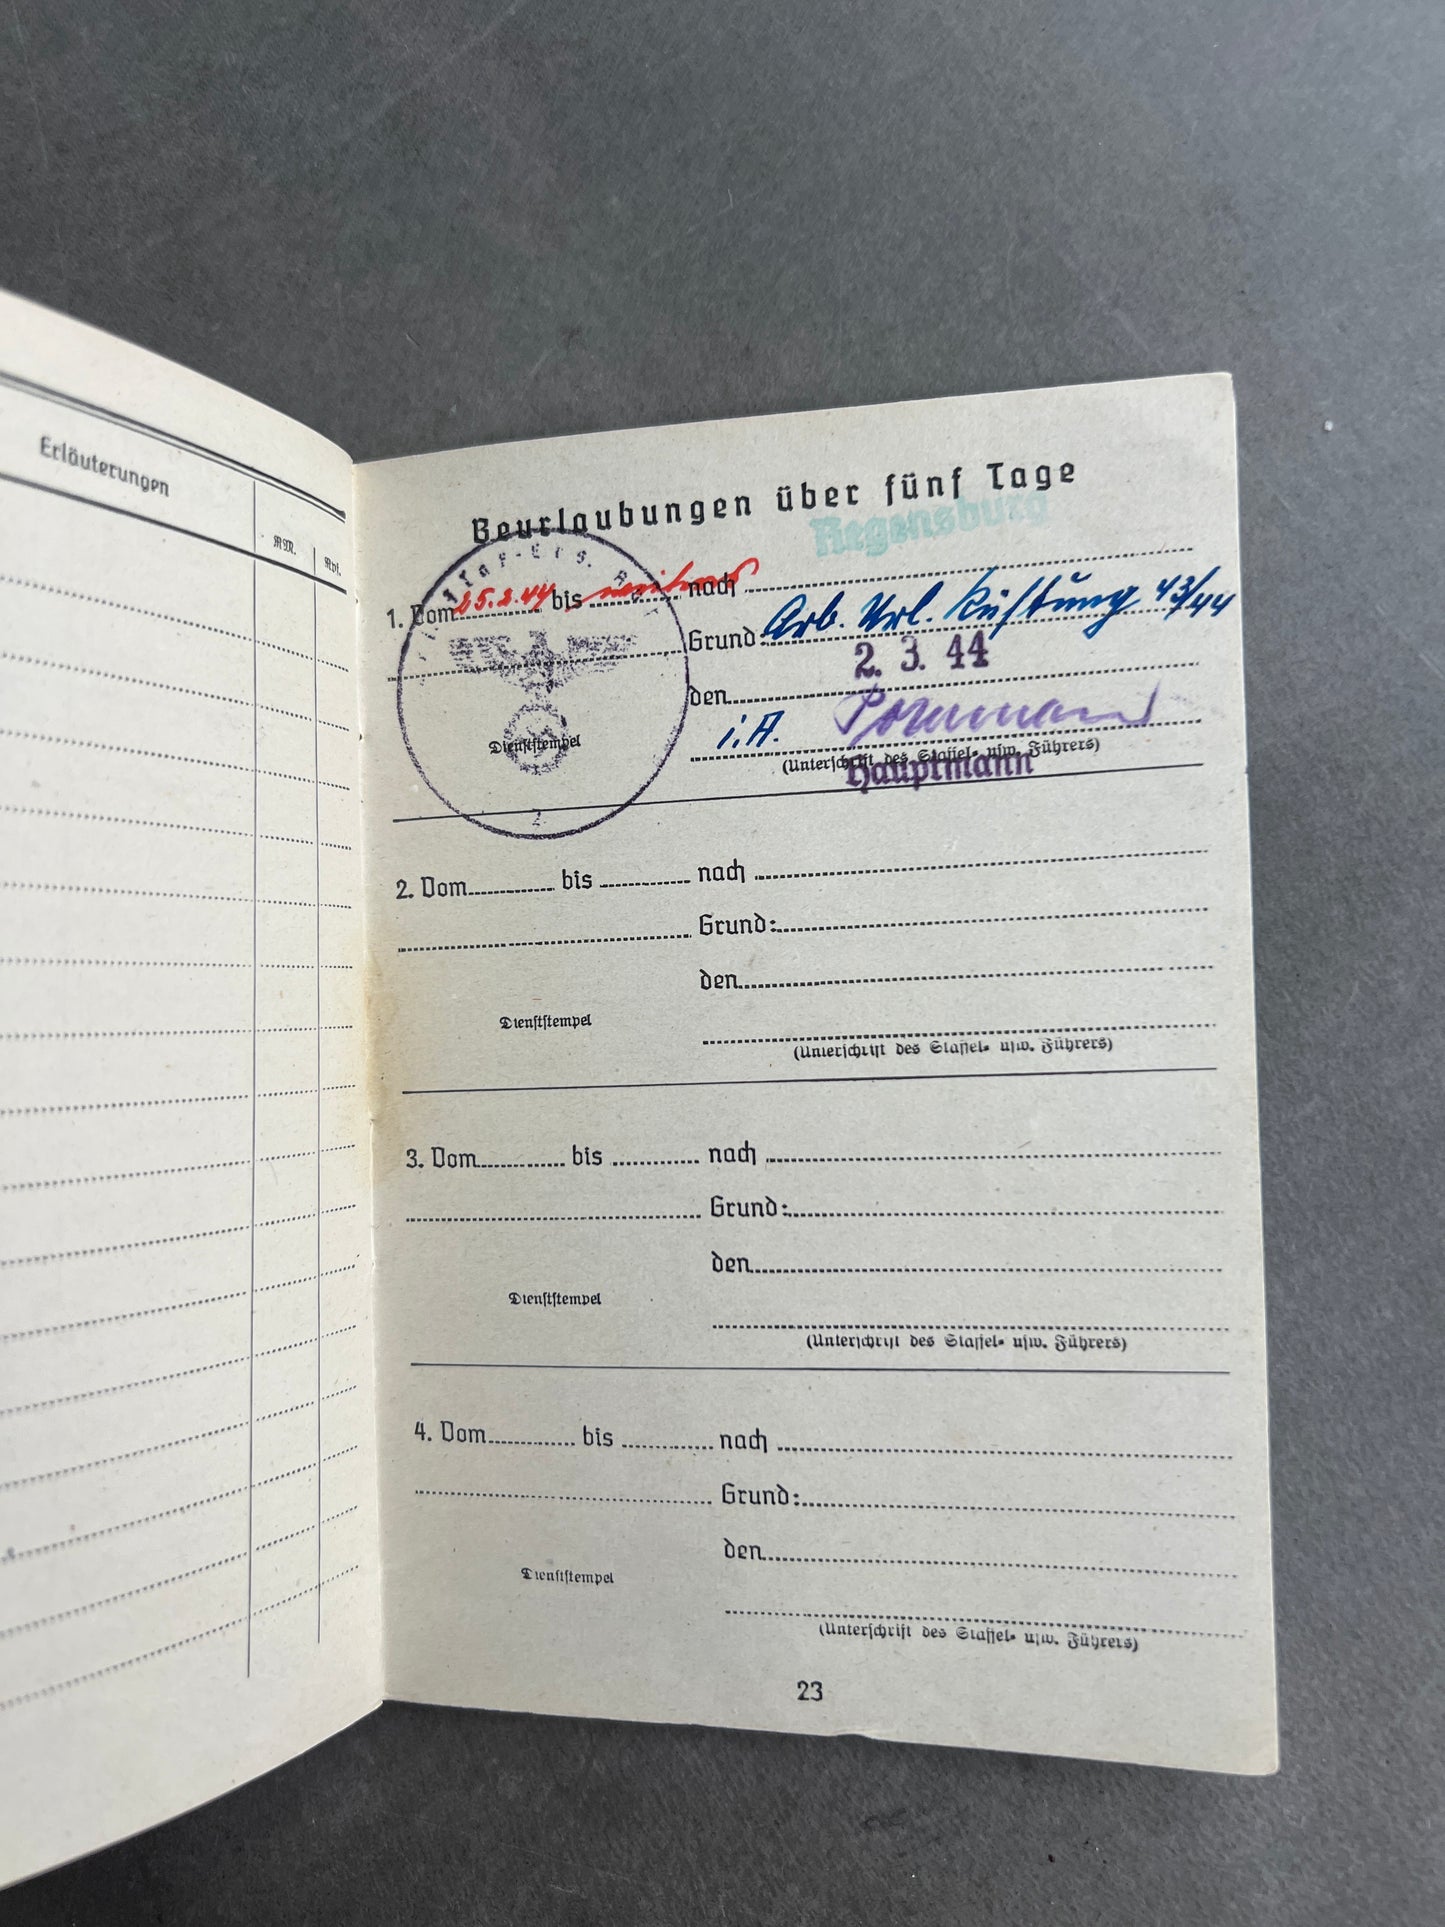 Erläuterungen
RM.
Rpf.
Beurlaubungen über fünf Tage
Regensburg
1. Vom 25.2.44 bis nach
Grund: Arb. Url. Rüstung 43/44
2. 3. 44
den
i.A.
Dienststempel
(Unterschrift des Staffel- usw. Führers)
Hauptmann
2
2. Vom bis nach
Grund:
den
Dienststempel
(Unterschrift des Staffel- usw. Führers)
3. Vom bis nach
Grund:
den
Dienststempel
(Unterschrift des Staffel- usw. Führers)
4. Vom bis nach
Grund:
den
Dienststempel
(Unterschrift des Staffel- usw. Führers)
23